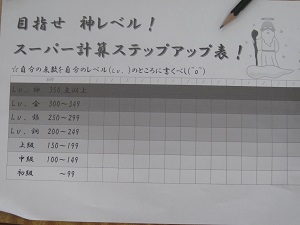 目指せ 神レベル！
スーパー計算ステップアップ表！
☆自分の点数を自分のレベル(Lv.)のところに書くべし(^o^)
Lv. 神 350点以上
Lv. 金 300～349
Lv. 銀 250～299
Lv. 銅 200～249
上級 150～199
中級 100～149
初級 ～99